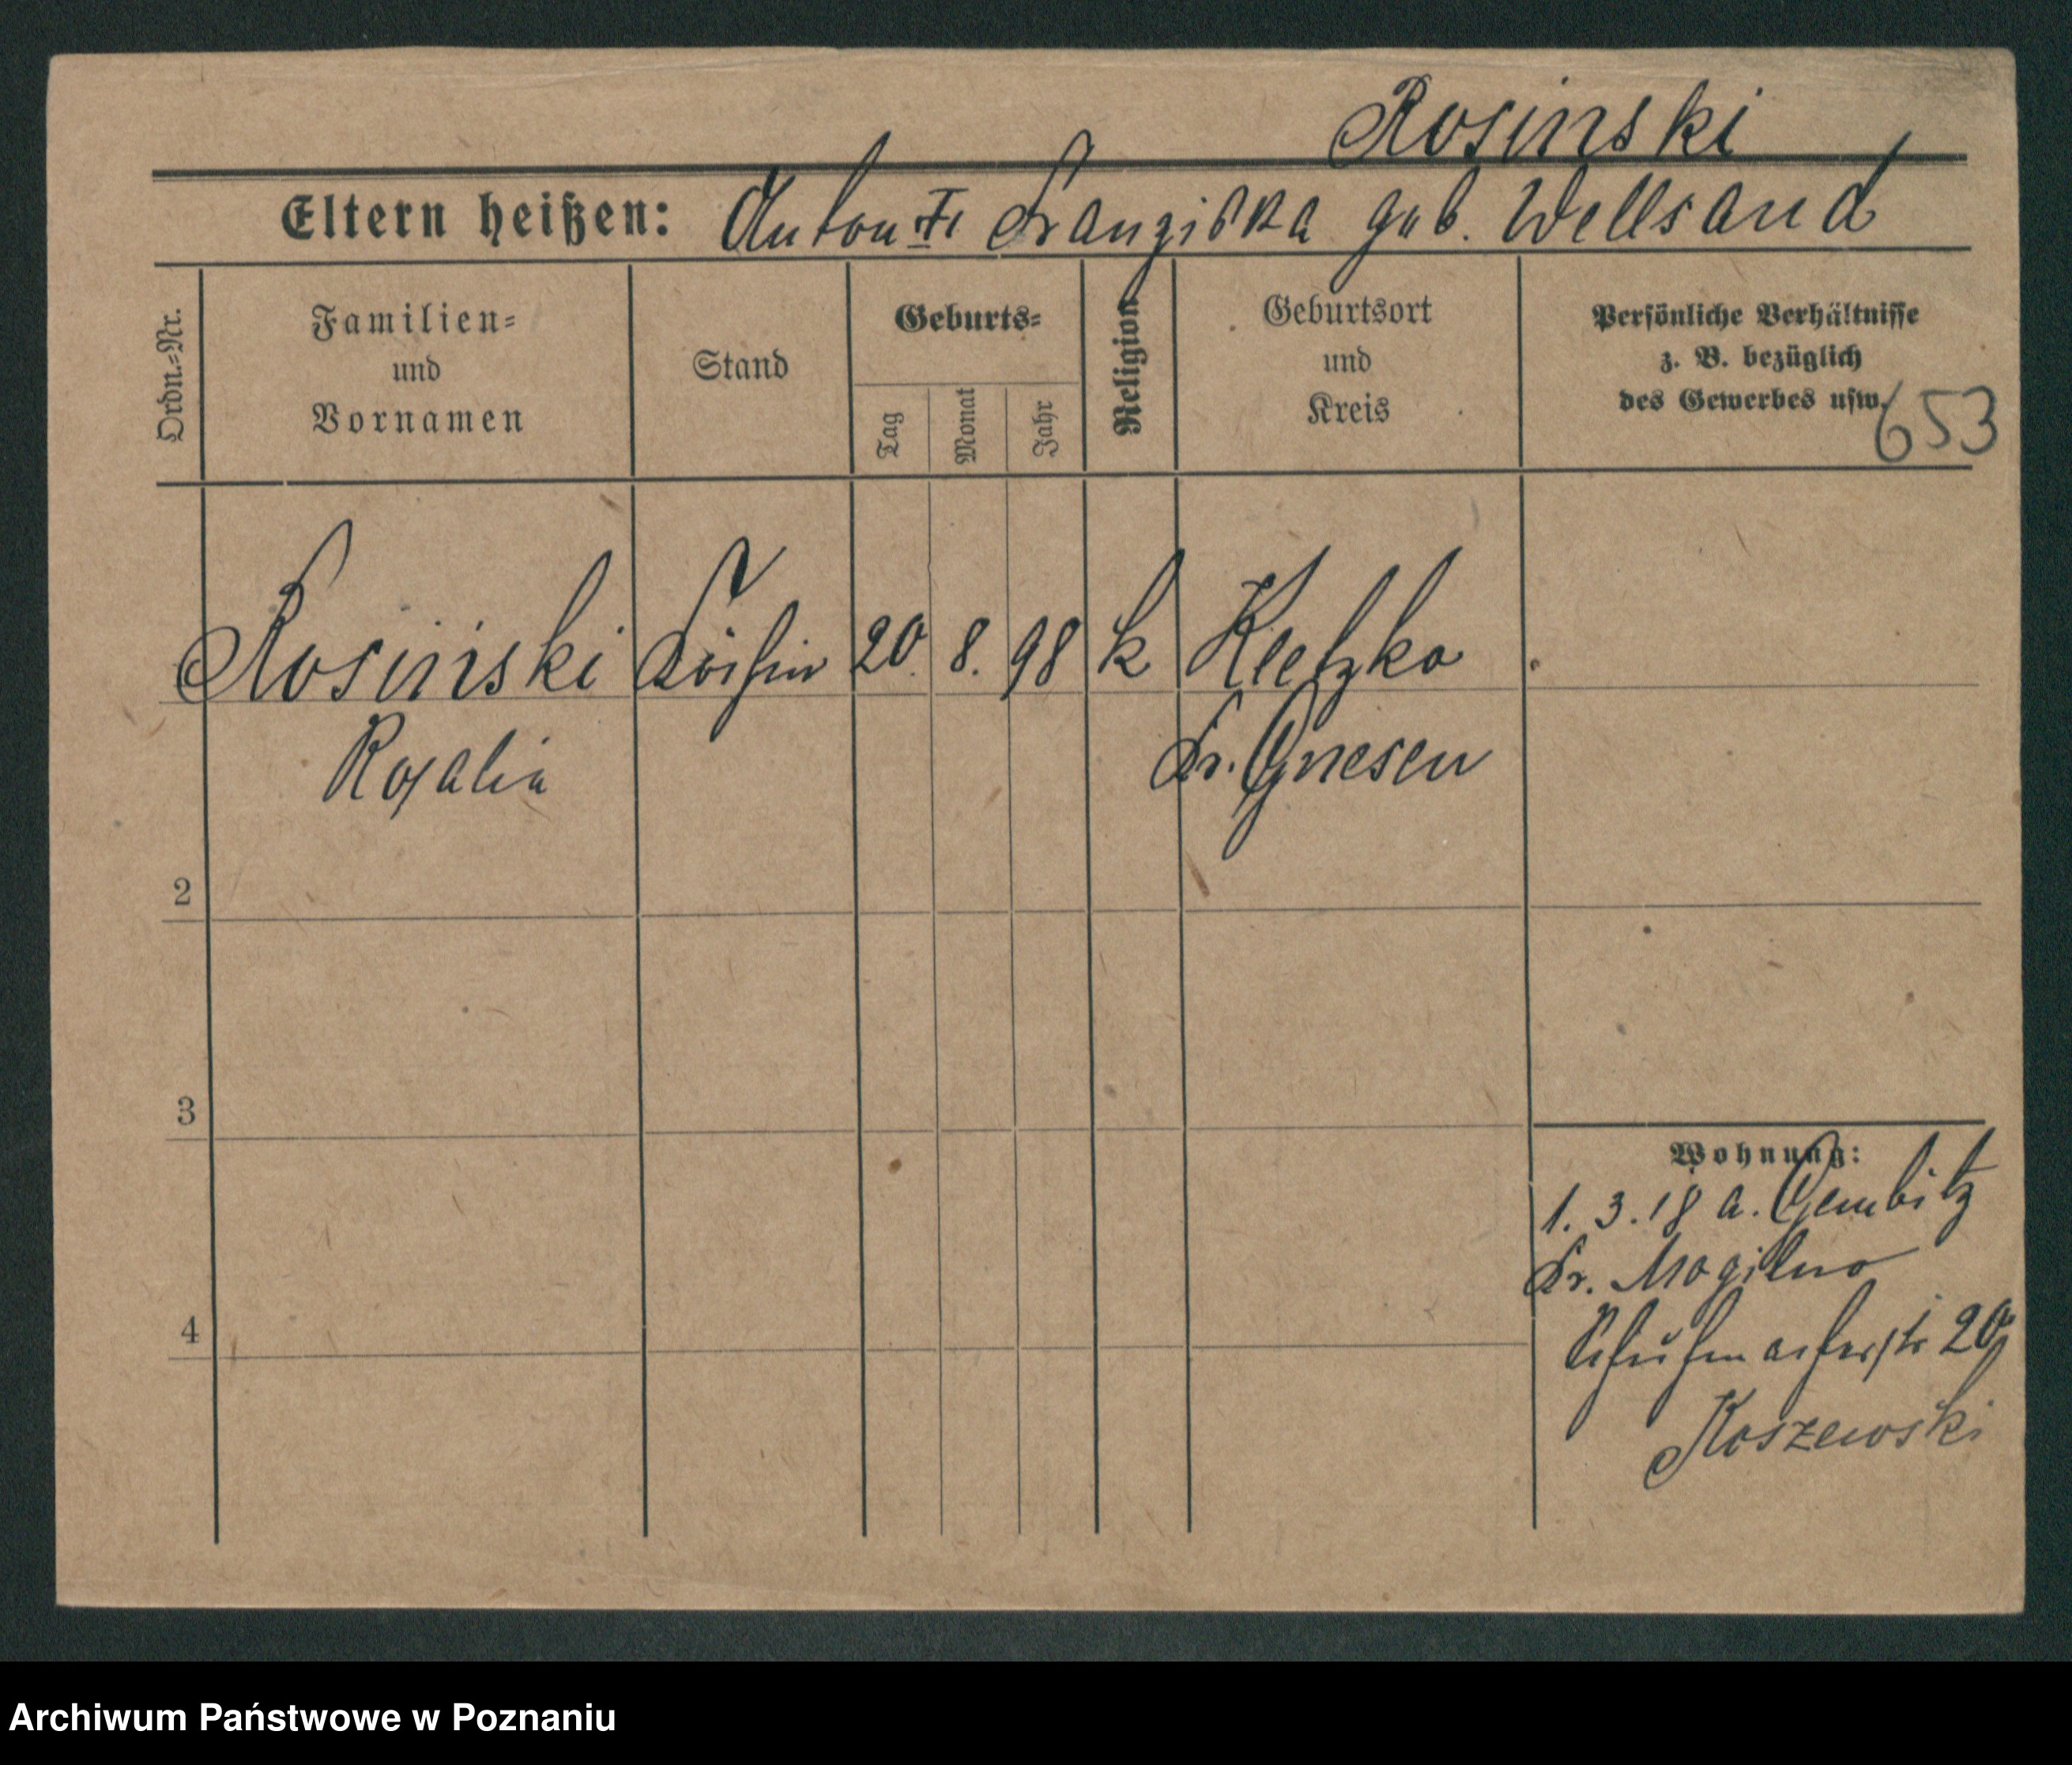 Rosinski
Eltern heißen: Anton u. Franziska geb. Wellsand
Ordn.-Nr.
Familien- und Vornamen
Stand
Geburts-
Tag
Monat
Jahr
Religion
Geburtsort und Kreis
Persönliche Verhältnisse
z. B. bezüglich
des Gewerbes usw.
653
Rosinski Köchin 20. 8. 98 k Kletzko
Rosalia Kr. Gnesen
2
3
4
Wohnung:
1. 3. 18 a. Gembitz
Kr. Mogilno
Schuhmacherstr 20
Koszewski
Archiwum Państwowe w Poznaniu